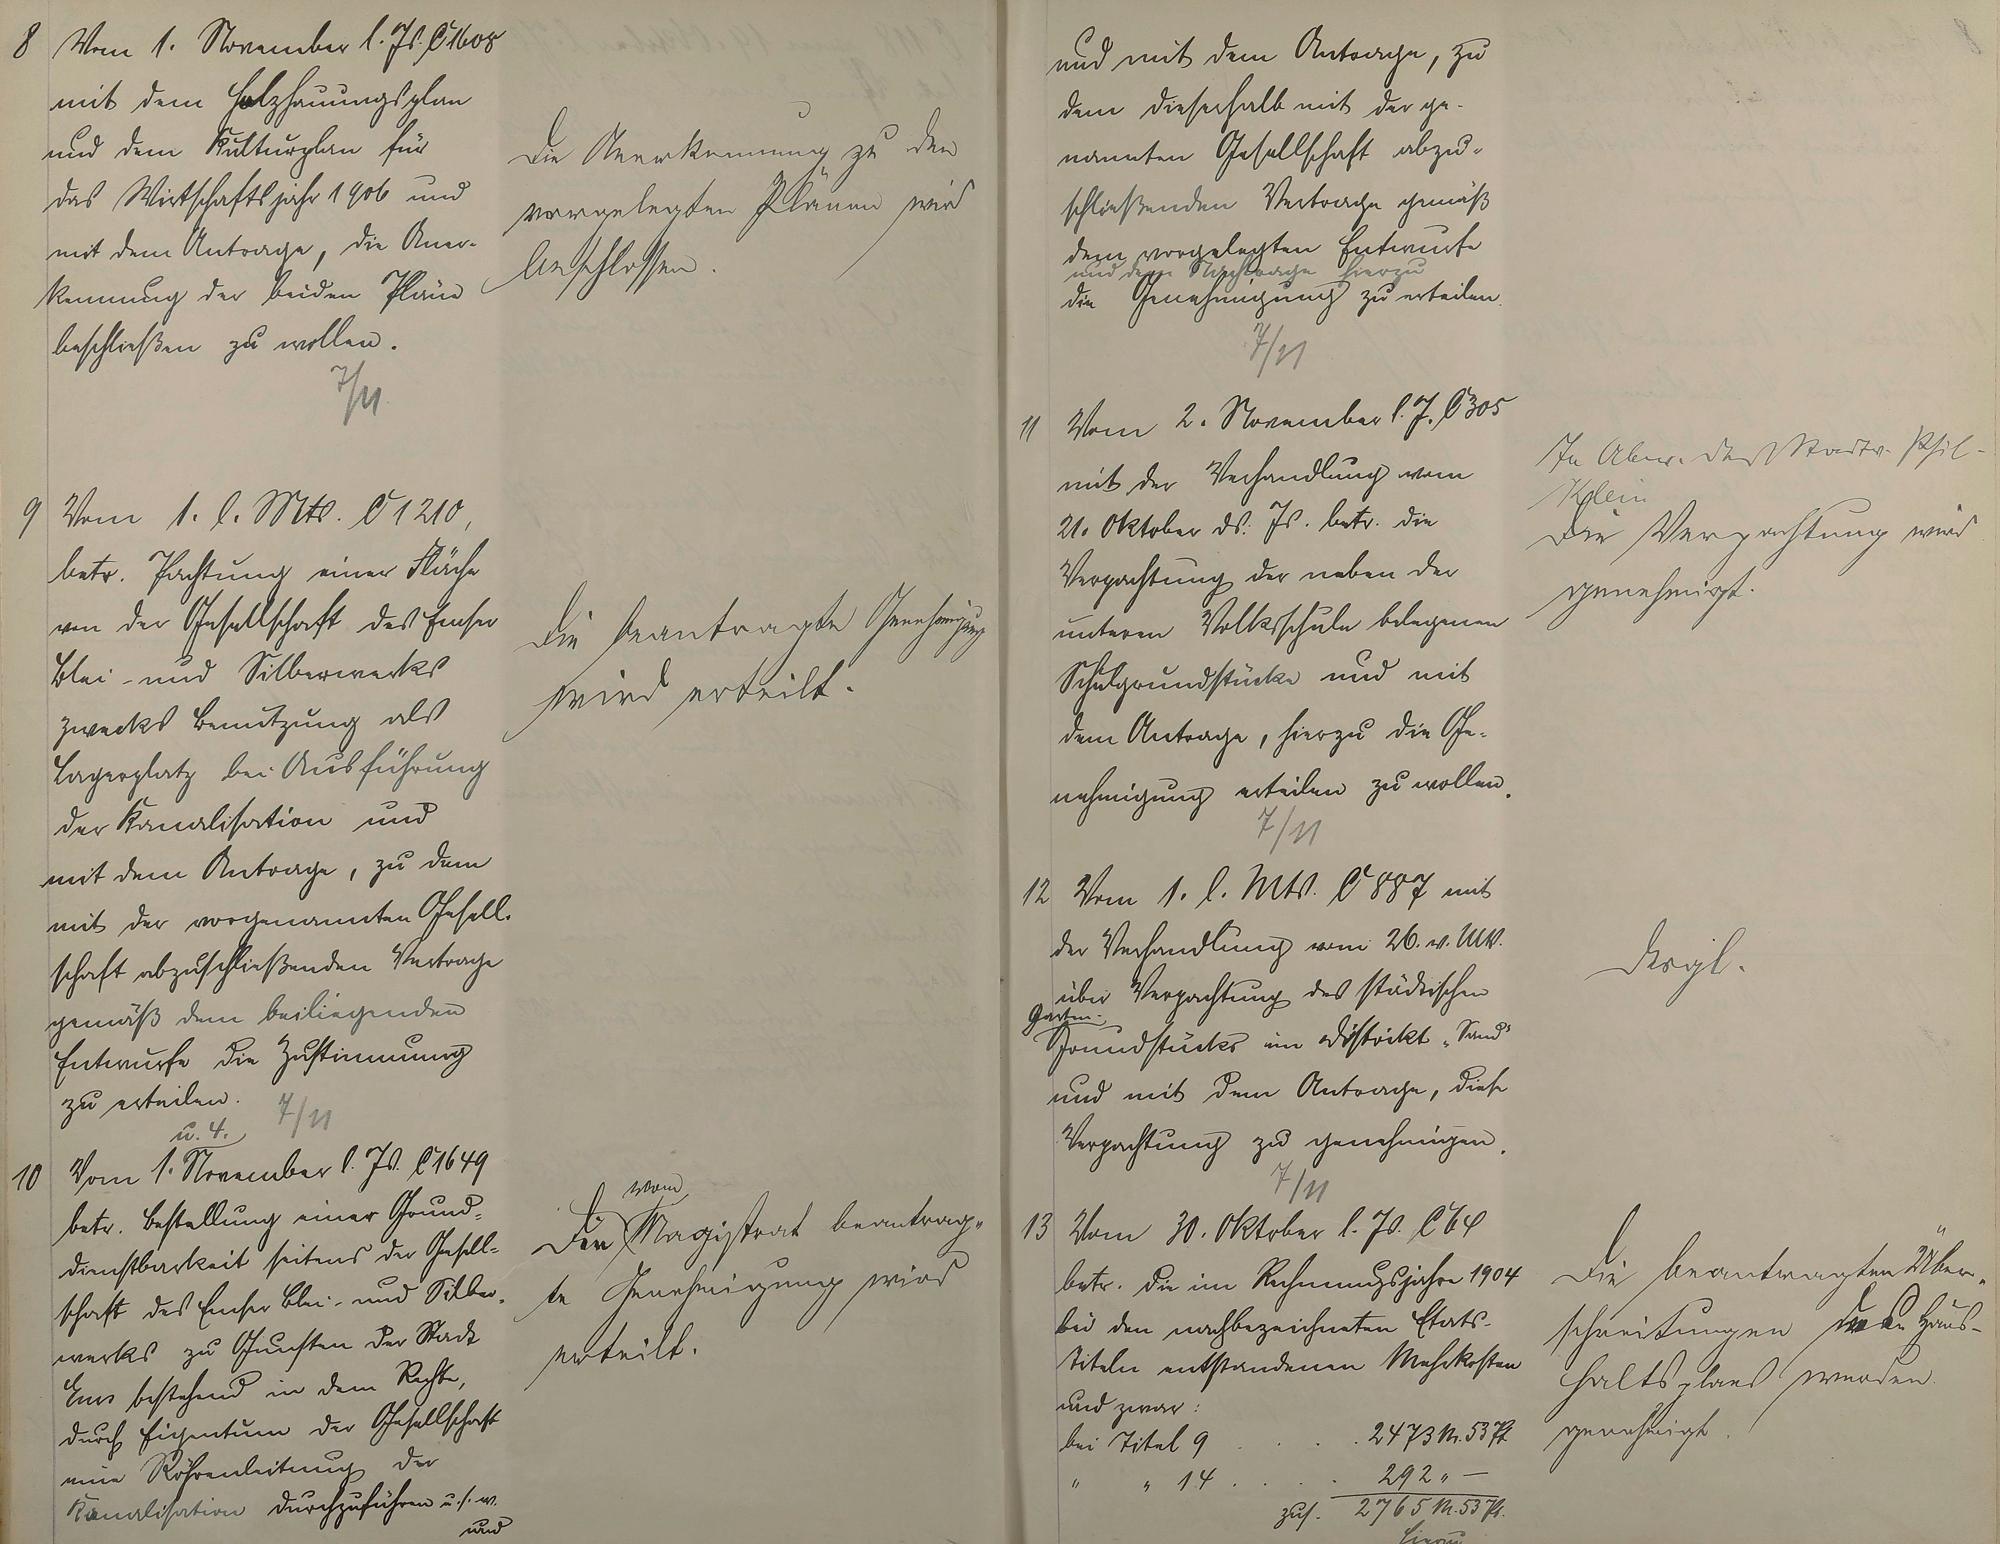 8 Vom 1. November l. Js. C 1608
mit dem Holzhauungsplan
und dem Kulturplan für
das Wirtschaftsjahr 1906 und
mit dem Antrage, die Aner-
kennung der beiden Pläne
beschließen zu wollen.
7/11
Die Anerkennung zu den
vorgelegten Plänen wird
beschlossen.
9 Vom 1. l. Mts. C 1210,
betr. Pachtung einer Fläche
von der Gesellschaft des Emser
Blei- und Silberwerks
zwecks Benutzung als
Lagerplatz bei Ausführung
der Kanalisation und
mit dem Antrage, zu dem
mit der vorgenannten Gesell-
schaft abzuschließenden Vertrage
gemäß dem beiliegenden
Entwurfe die Zustimmung
zu erteilen.
7/11
Die beantragte Genehmigung
wird erteilt.
u. 4.
10 Vom 1. November l. Js. C 1649
betr. Bestellung einer Grund-
dienstbarkeit seitens der Gesell-
schaft des Emser Blei- und Silber-
werks zu Gunsten der Stadt
Ems bestehend in dem Rechte,
durch Eigentum der Gesellschaft
eine Röhrenleitung der
Kanalisation durchzuführen u.s.w.
und
vom
Die Magistrat beantrag-
te Genehmigung wird
erteilt.
und mit dem Antrage, zu
dem dieserhalb mit der ge-
nannten Gesellschaft abzu-
schließenden Vertrage gemäß
dem vorgelegten Entwurfe
und dem Nachtrage hierzu
die Genehmigung zu erteilen.
7/11
11 Vom 2. November l. J. C 305
mit der Verhandlung vom
21. Oktober ds. Js. betr. die
Verpachtung der neben der
unteren Volksschule belegenen
Schulgrundstücke und mit
dem Antrage, hierzu die Ge-
nehmigung erteilen zu wollen.
7/11
In Abw. des Stadtv. Phil.
Klein
Die Verpachtung wird
genehmigt.
12 Vom 1. l. Mts. C 887 mit
der Verhandlung vom 26. v. Mts.
über Verpachtung des städtischen
Garten-
Grundstücks im Distrikt "Sand"
und mit dem Antrage, diese
Verpachtung zu genehmigen.
7/11
Desgl.
13 Vom 30. Oktober l. Js. C 64
betr. die im Rechnungsjahre 1904
bei den nachbezeichneten Etats-
titeln entstandenen Mehrkosten
und zwar:
bei Titel 9 . . . . 2473 M. 53 Pf.
" " 14 . . . . 292 " —
zus. 2765 M. 53 Pf.
hierzu
Die beantragten Über-
schreitungen des Haus-
haltsplans werden
genehmigt.